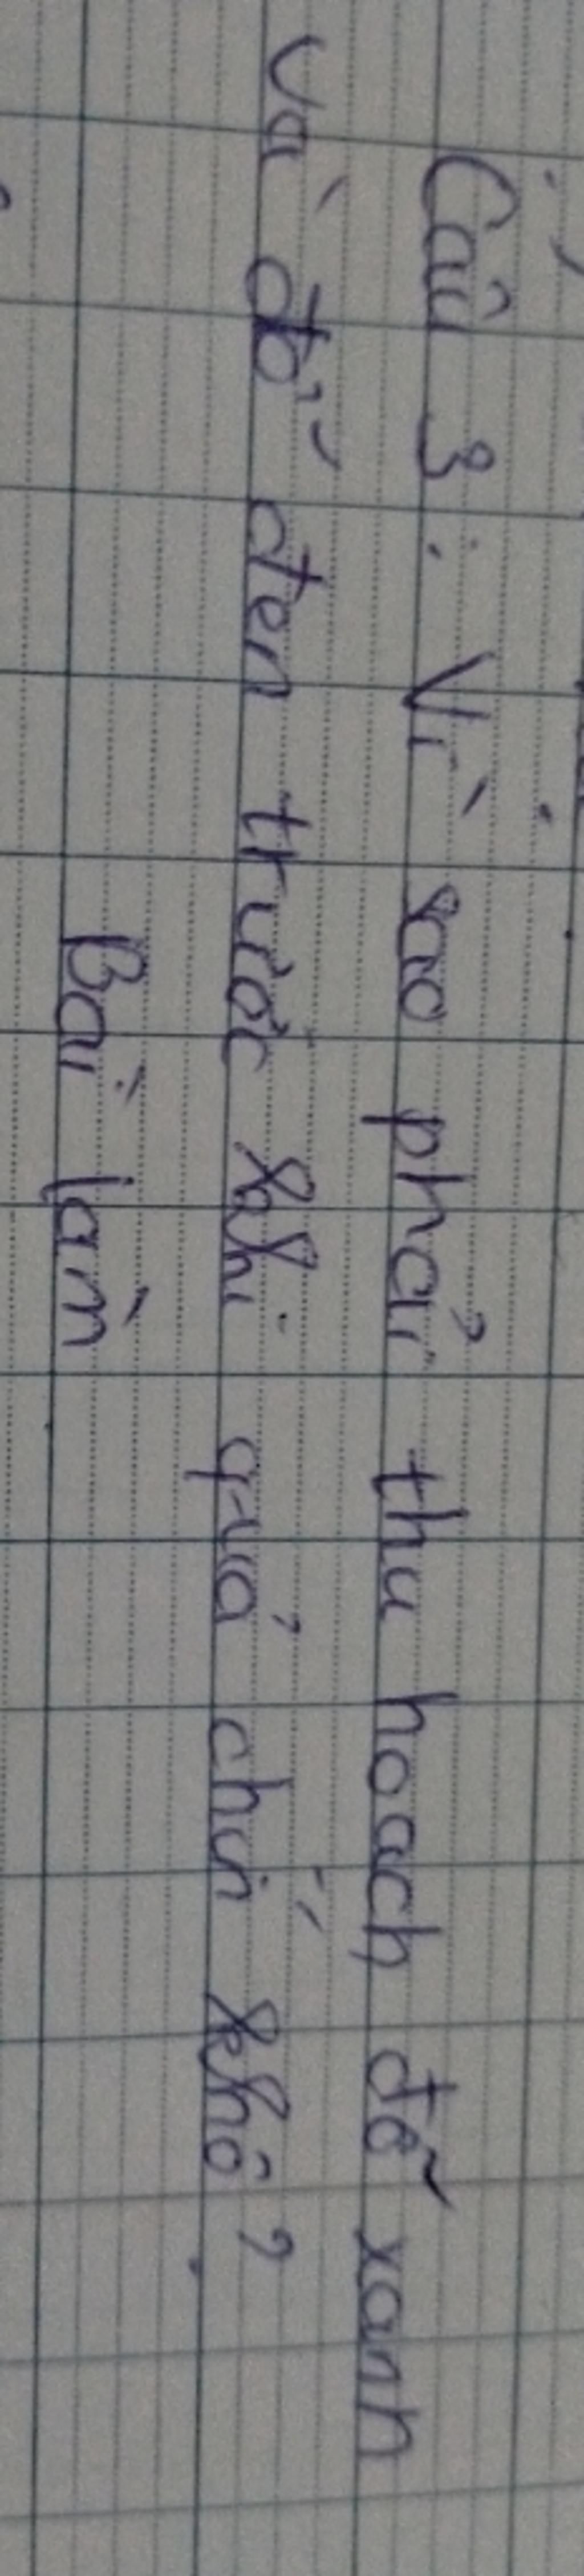 Câu 3: Vì sao phải thu hoạch đỗ xanh
và đỗ đen trước khi quả chín khô?
Bài làm